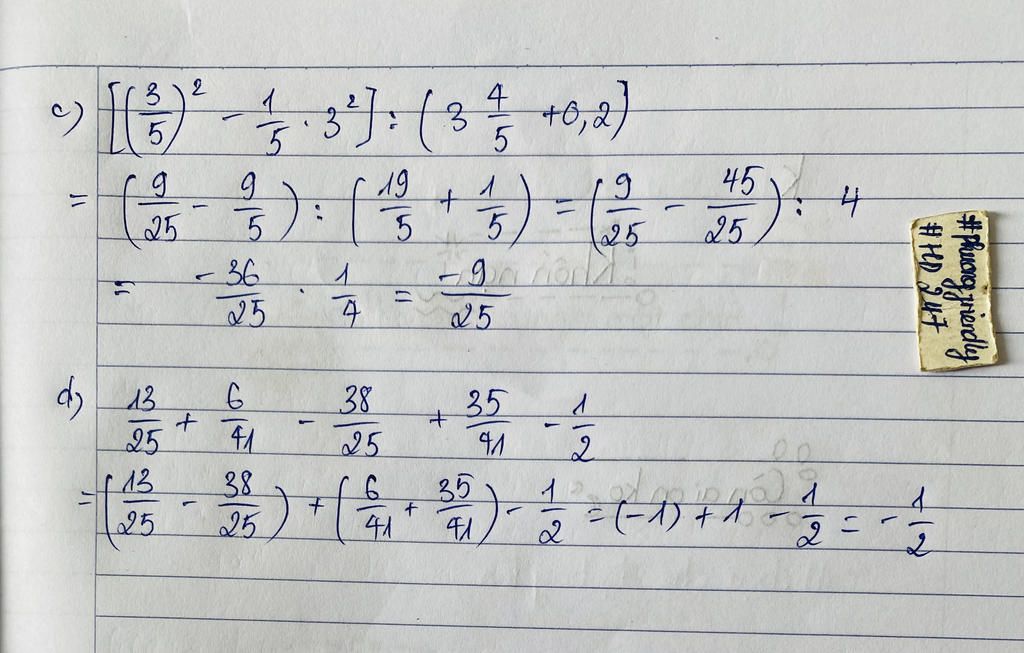 c) [(3/5)² - 1/5 · 3²] : (3 4/5 + 0,2)
= (9/25 - 9/5) : (19/5 + 1/5) = (9/25 - 45/25) : 4
= -36/25 · 1/4 = -9/25
d) 13/25 + 6/41 - 38/25 + 35/41 - 1/2
= (13/25 - 38/25) + (6/41 + 35/41) - 1/2 = (-1) + 1 - 1/2 = -1/2